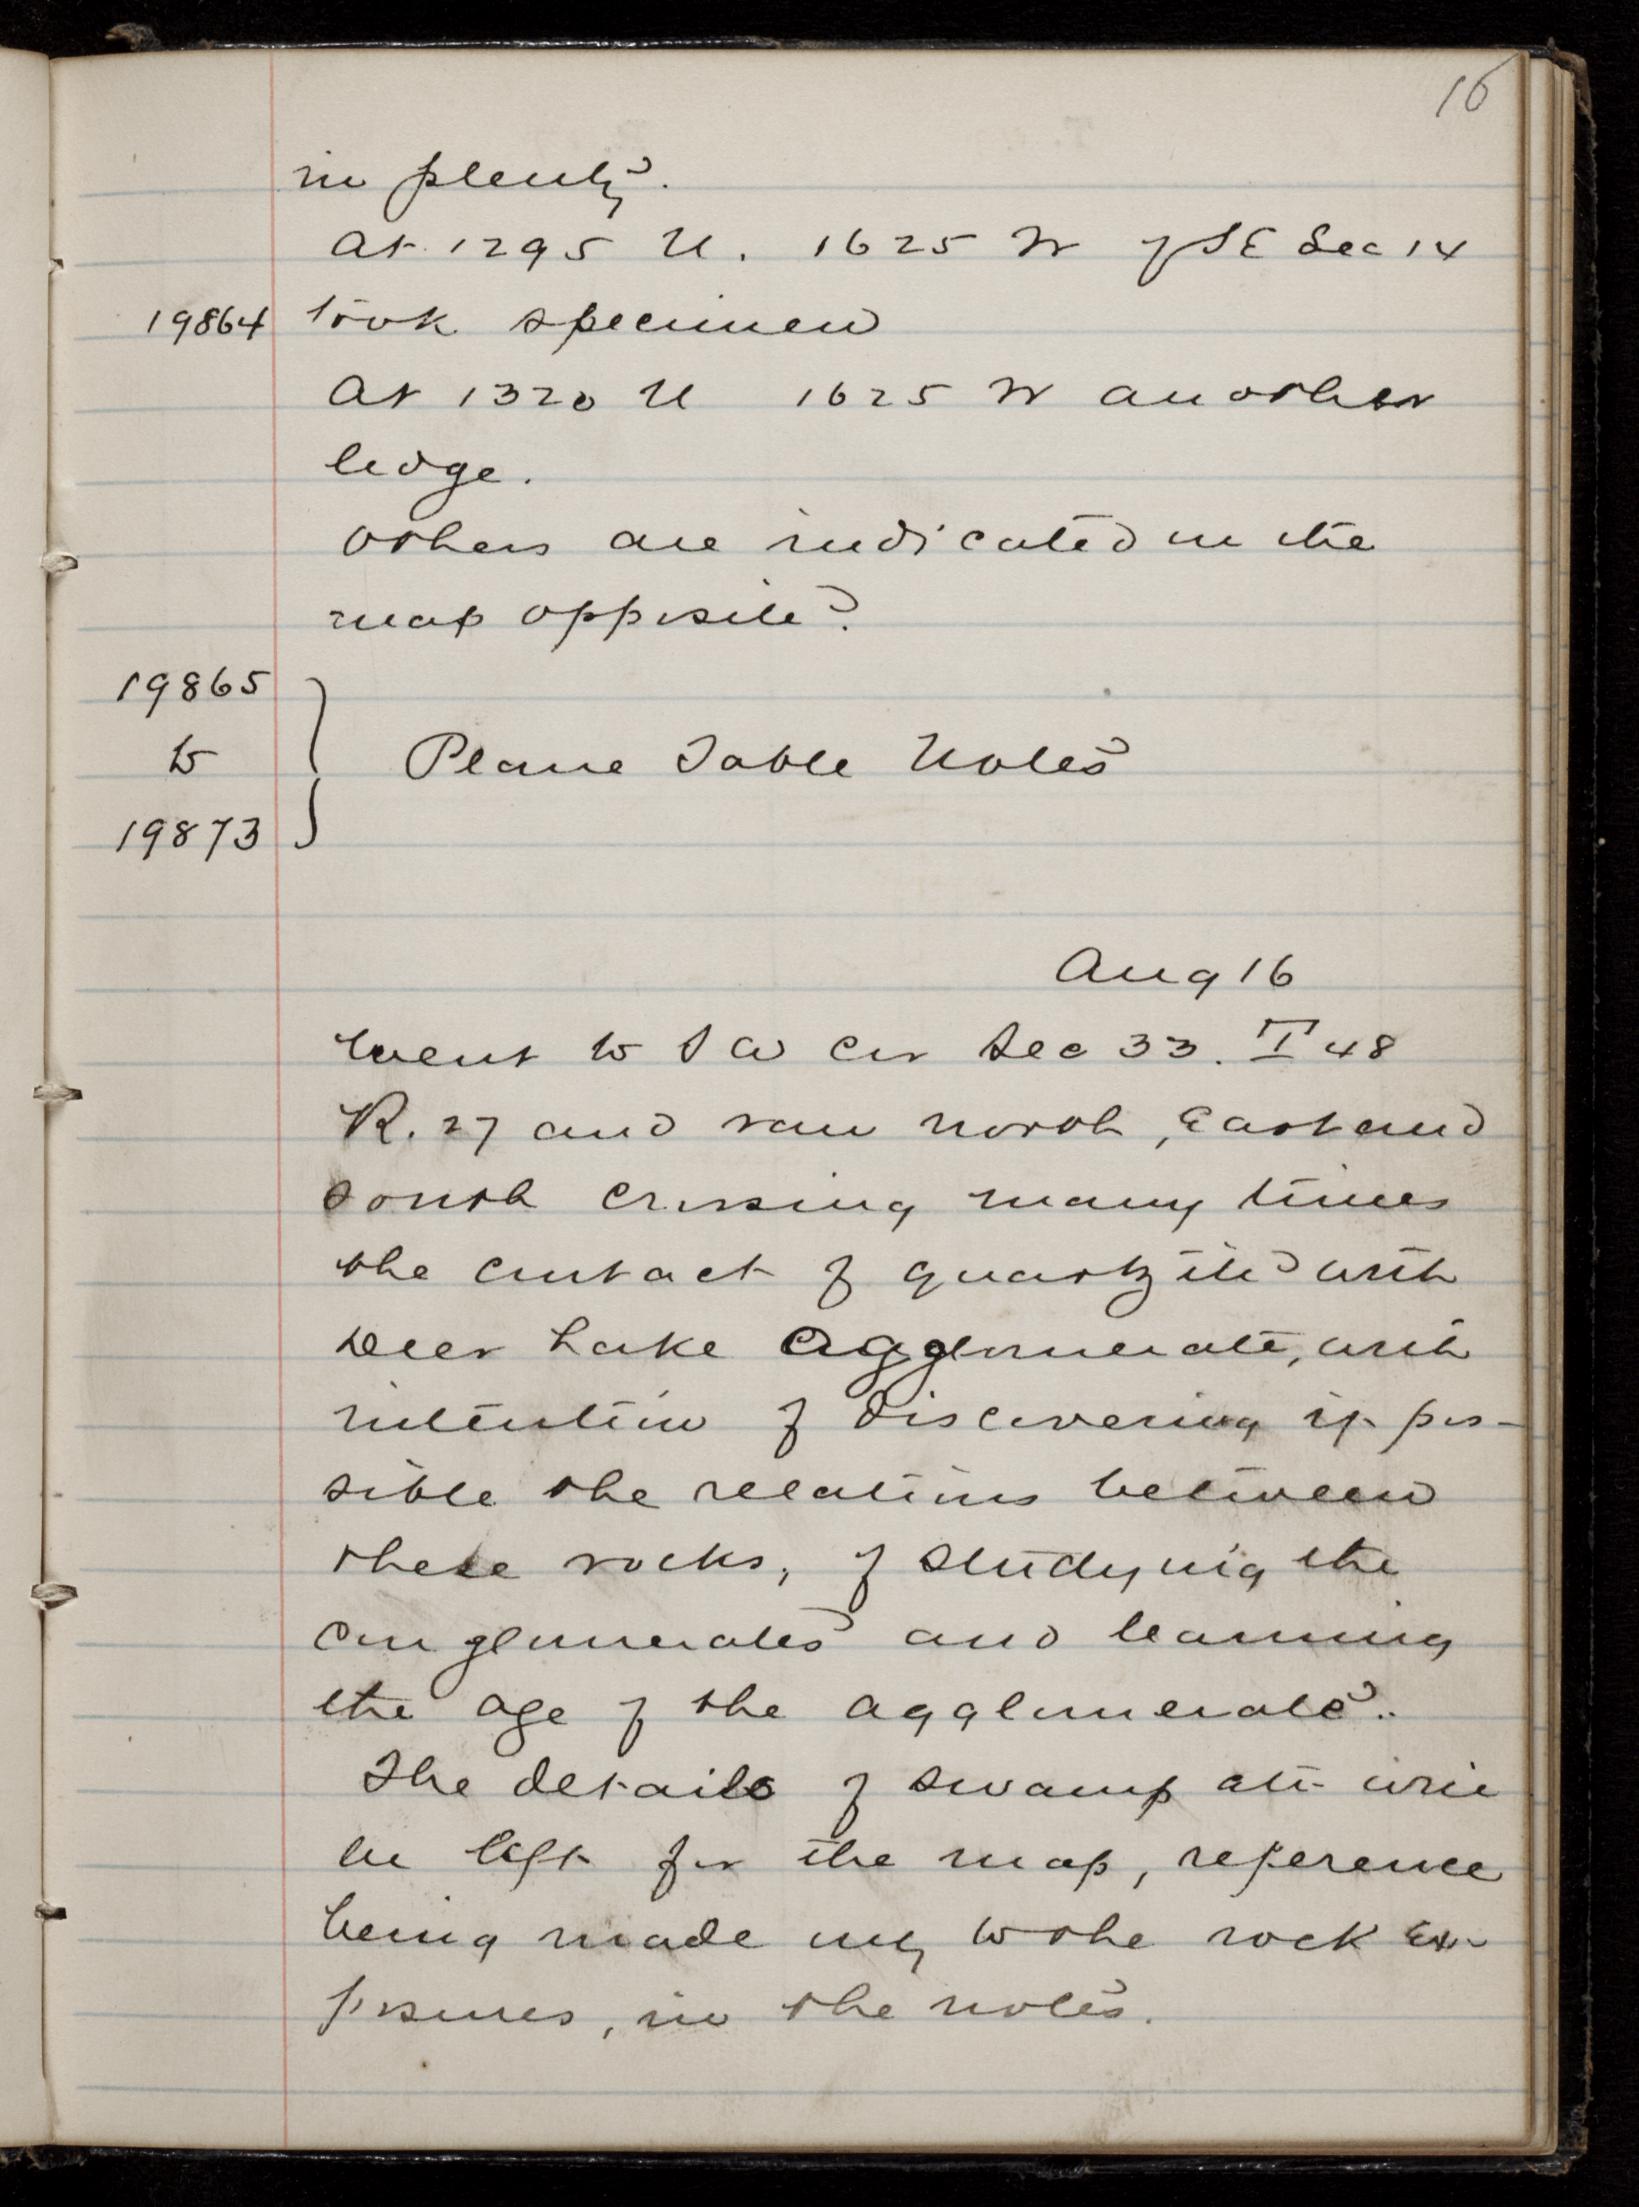 16
in plenty.
At 1295 N. 1625 W of SE Sec 14
19864 took specimen
At 1320 N 1625 W another
ledge.
Others are indicated on the
map opposite.
19865
to Plane Table Notes
19873
Aug 16
Went to SW cor Sec 33. T 48
R. 27 and ran north, east and
south crossing many times
the contact of quartzite with
Deer Lake agglomerate, with
intention of discovering if pos-
sible the relations between
these rocks, of studying the
conglomerates and learning
the age of the agglomerate.
The details of swamp etc will
be left for the map, reference
being made only to the rock ex-
posures, in the notes.